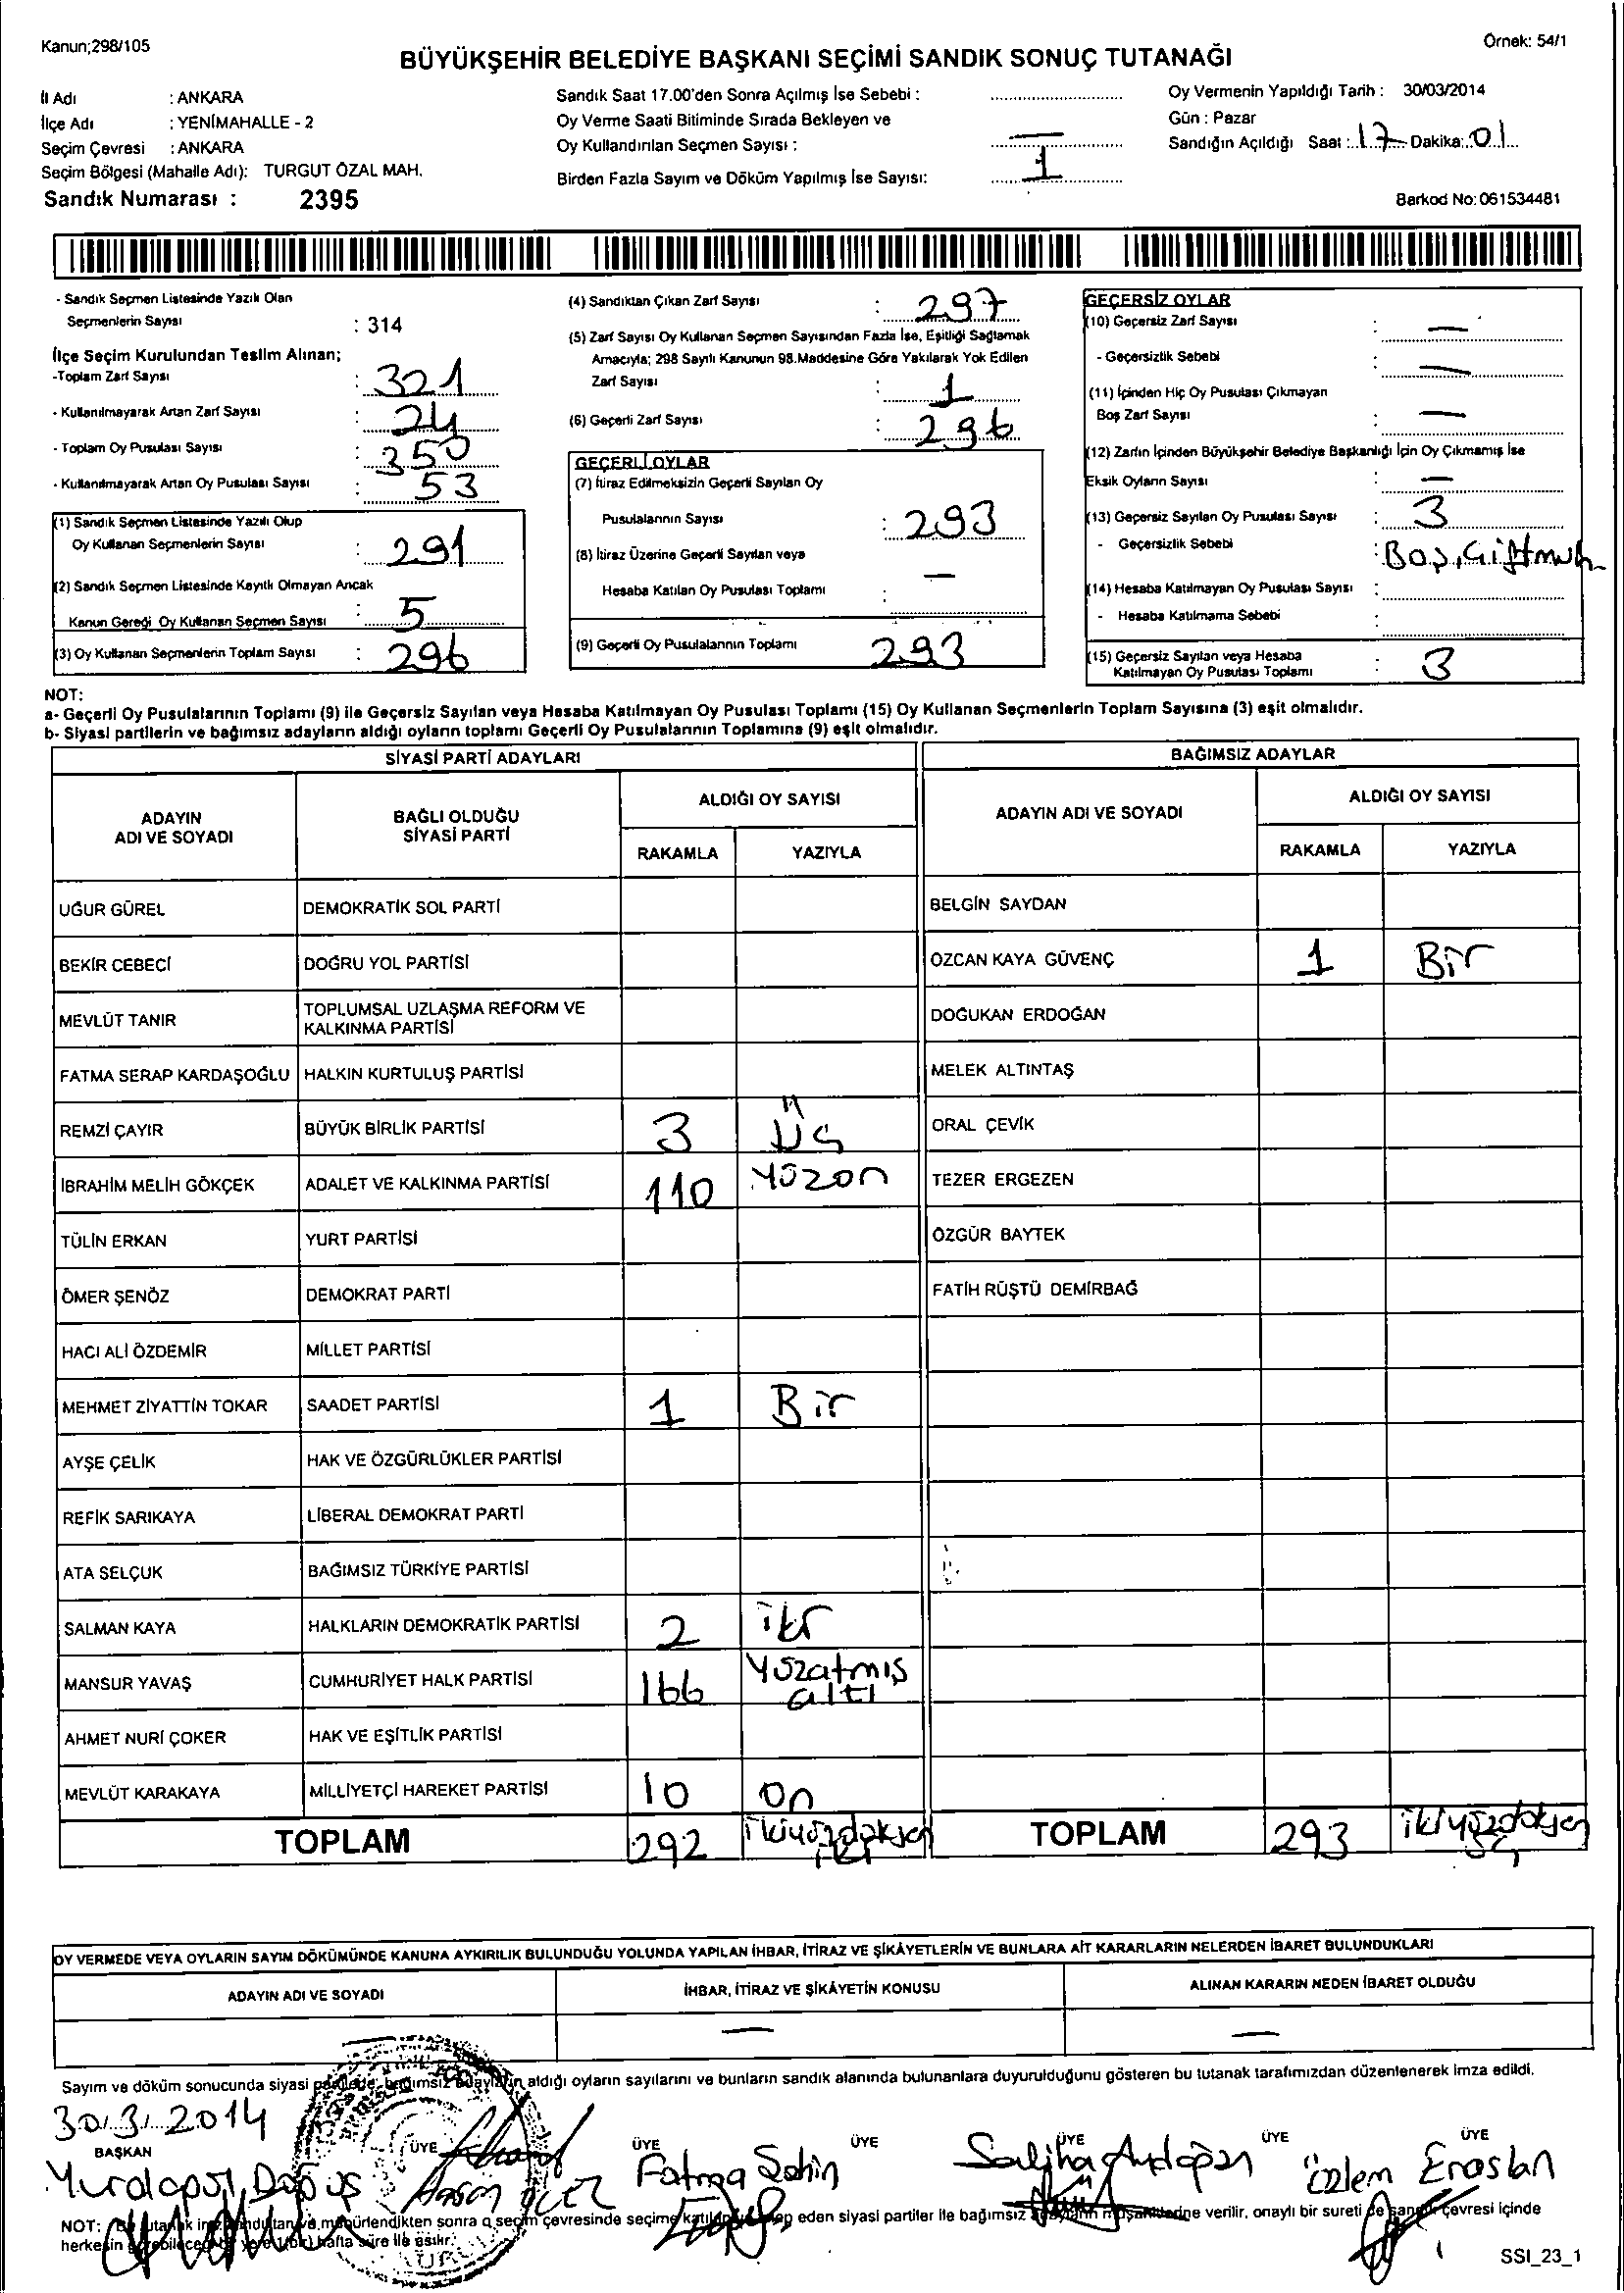 Kanun;298/105
Örnek: 54/1
BÜYÜKŞEHİR BELEDİYE BAŞKANI SEÇİMİ SANDIK SONUÇ TUTANAĞI
İl Adı : ANKARA
İlçe Adı : YENİMAHALLE - 2
Seçim Çevresi : ANKARA
Seçim Bölgesi (Mahalle Adı): TURGUT ÖZAL MAH.
Sandık Numarası : 2395
Sandık Saat 17.00'den Sonra Açılmış İse Sebebi :
Oy Verme Saati Bitiminde Sırada Bekleyen ve
Oy Kullandırılan Seçmen Sayısı : —
Birden Fazla Sayım ve Döküm Yapılmış İse Sayısı: 1
Oy Vermenin Yapıldığı Tarih : 30/03/2014
Gün : Pazar
Sandığın Açıldığı Saat : 17 Dakika: 01
Barkod No:061534481
- Sandık Seçmen Listesinde Yazılı Olan
Seçmenlerin Sayısı : 314
İlçe Seçim Kurulundan Teslim Alınan;
-Toplam Zarf Sayısı : 321
- Kullanılmayarak Artan Zarf Sayısı : 24
- Toplam Oy Pusulası Sayısı : 350
- Kullanılmayarak Artan Oy Pusulası Sayısı : 53
(1) Sandık Seçmen Listesinde Yazılı Olup
Oy Kullanan Seçmenlerin Sayısı : 291
(2) Sandık Seçmen Listesinde Kayıtlı Olmayan Ancak
Kanun Gereği Oy Kullanan Seçmen Sayısı : 5
(3) Oy Kullanan Seçmenlerin Toplam Sayısı : 296
(4) Sandıktan Çıkan Zarf Sayısı : 297
(5) Zarf Sayısı Oy Kullanan Seçmen Sayısından Fazla İse, Eşitliği Sağlamak
Amacıyla; 298 Sayılı Kanunun 98.Maddesine Göre Yakılarak Yok Edilen
Zarf Sayısı : 1
(6) Geçerli Zarf Sayısı : 296
GEÇERLİ OYLAR
(7) İtiraz Edilmeksizin Geçerli Sayılan Oy
Pusulalarının Sayısı : 293
(8) İtiraz Üzerine Geçerli Sayılan veya
Hesaba Katılan Oy Pusulası Toplamı : —
(9) Geçerli Oy Pusulalarının Toplamı 293
GEÇERSİZ OYLAR
(10) Geçersiz Zarf Sayısı : —
- Geçersizlik Sebebi : —
(11) İçinden Hiç Oy Pusulası Çıkmayan
Boş Zarf Sayısı : —
(12) Zarfın İçinden Büyükşehir Belediye Başkanlığı İçin Oy Çıkmamış İse
Eksik Oyların Sayısı : —
(13) Geçersiz Sayılan Oy Pusulası Sayısı : 3
- Geçersizlik Sebebi : Boş,
(14) Hesaba Katılmayan Oy Pusulası Sayısı :
- Hesaba Katılmama Sebebi :
(15) Geçersiz Sayılan veya Hesaba
Katılmayan Oy Pusulası Toplamı : 3
NOT:
a- Geçerli Oy Pusulalarının Toplamı (9) ile Geçersiz Sayılan veya Hesaba Katılmayan Oy Pusulası Toplamı (15) Oy Kullanan Seçmenlerin Toplam Sayısına (3) eşit olmalıdır.
b- Siyasi partilerin ve bağımsız adayların aldığı oyların toplamı Geçerli Oy Pusulalarının Toplamına (9) eşit olmalıdır.
SİYASİ PARTİ ADAYLARI
BAĞIMSIZ ADAYLAR
ADAYIN
ADI VE SOYADI
BAĞLI OLDUĞU
SİYASİ PARTİ
ALDIĞI OY SAYISI
RAKAMLA YAZIYLA
ADAYIN ADI VE SOYADI
ALDIĞI OY SAYISI
RAKAMLA YAZIYLA
UĞUR GÜREL DEMOKRATİK SOL PARTİ BELGİN SAYDAN
BEKİR CEBECİ DOĞRU YOL PARTİSİ ÖZCAN KAYA GÜVENÇ 1 Bir
MEVLÜT TANIR TOPLUMSAL UZLAŞMA REFORM VE
KALKINMA PARTİSİ DOĞUKAN ERDOĞAN
FATMA SERAP KARDAŞOĞLU HALKIN KURTULUŞ PARTİSİ MELEK ALTINTAŞ
REMZİ ÇAYIR BÜYÜK BİRLİK PARTİSİ 3 Üç ORAL ÇEVİK
İBRAHİM MELİH GÖKÇEK ADALET VE KALKINMA PARTİSİ 110 Yüzon TEZER ERGEZEN
TÜLİN ERKAN YURT PARTİSİ ÖZGÜR BAYTEK
ÖMER ŞENÖZ DEMOKRAT PARTİ FATİH RÜŞTÜ DEMİRBAĞ
HACI ALİ ÖZDEMİR MİLLET PARTİSİ
MEHMET ZİYATTİN TOKAR SAADET PARTİSİ 1 Bir
AYŞE ÇELİK HAK VE ÖZGÜRLÜKLER PARTİSİ
REFİK SARIKAYA LİBERAL DEMOKRAT PARTİ
ATA SELÇUK BAĞIMSIZ TÜRKİYE PARTİSİ
SALMAN KAYA HALKLARIN DEMOKRATİK PARTİSİ 2 iki
MANSUR YAVAŞ CUMHURİYET HALK PARTİSİ 166 Yüzatmış
altı
AHMET NURİ ÇOKER HAK VE EŞİTLİK PARTİSİ
MEVLÜT KARAKAYA MİLLİYETÇİ HAREKET PARTİSİ 10 On
TOPLAM 292 ikiyüzdoksan
iki
TOPLAM 293 ikiyüzdoksan
üç
OY VERMEDE VEYA OYLARIN SAYIM DÖKÜMÜNDE KANUNA AYKIRILIK BULUNDUĞU YOLUNDA YAPILAN İHBAR, İTİRAZ VE ŞİKÂYETLERİN VE BUNLARA AİT KARARLARIN NELERDEN İBARET BULUNDUKLARI
ADAYIN ADI VE SOYADI İHBAR, İTİRAZ VE ŞİKÂYETİN KONUSU ALINAN KARARIN NEDEN İBARET OLDUĞU
— —
Sayım ve döküm sonucunda siyasi bağımsız aldığı oyların sayılarını ve bunların sandık alanında bulunanlara duyurulduğunu gösteren bu tutanak tarafımızdan düzenlenerek imza edildi.
30.3.2014
BAŞKAN ÜYE ÜYE ÜYE ÜYE ÜYE ÜYE
Hasan Fatma Şahin Saliha Aydoğan Özlem Eraslan
NOT: mühürlendikten sonra o seçim çevresinde seçime eden siyasi partiler ile bağımsız verilir, onaylı bir sureti de çevresi içinde
herkesin hafta süre ile asılır.
SSI_23_1